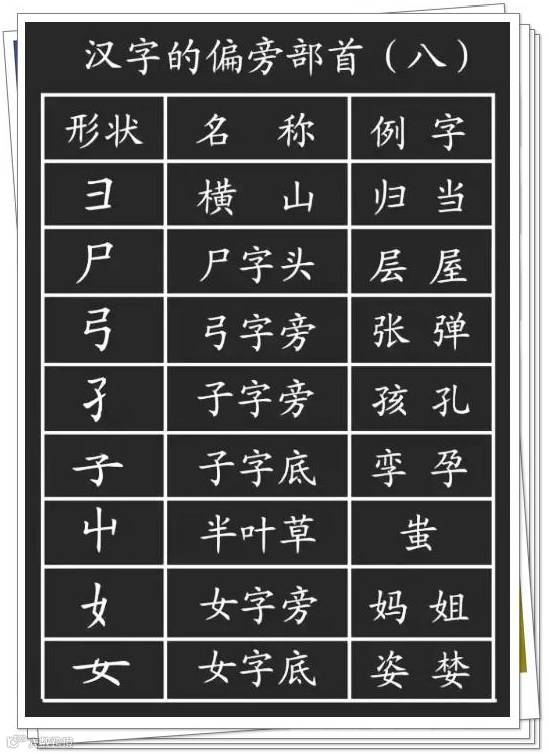 汉字的偏旁部首（八）
形状 名 称 例 字
彐 横 山 归 当
尸 尸字头 层 屋
弓 弓字旁 张 弹
孑 子字旁 孩 孔
子 子字底 孪 孕
屮 半叶草 蚩
女 女字旁 妈 姐
女 女字底 姿 婪